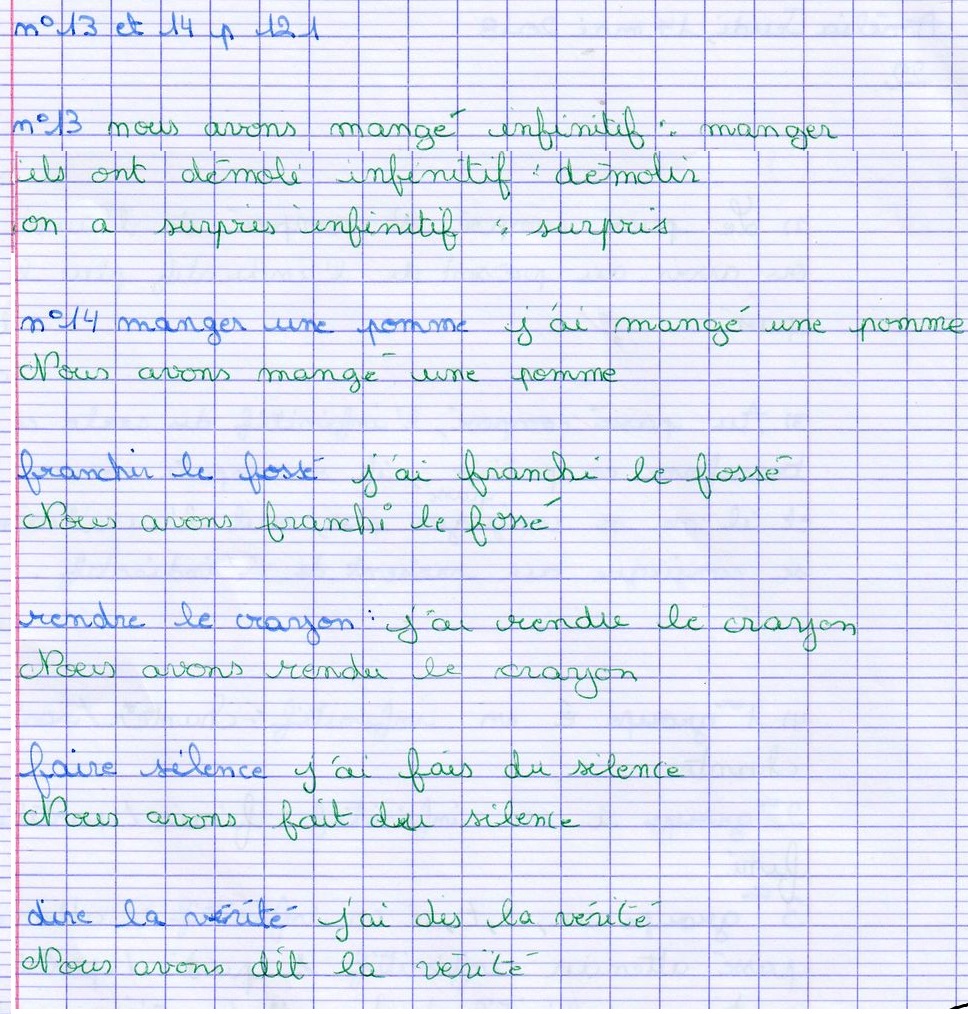 n°13 et 14 p 121
n°13 nous avons mangé infinitif : manger
ils ont démoli infinitif : démolir
on a surpris infinitif : surpris
n°14 manger une pomme j'ai mangé une pomme
Nous avons mangé une pomme
franchir le fossé j'ai franchi le fossé
Nous avons franchi le fossé
rendre le crayon : j'ai rendu le crayon
Nous avons rendu le crayon
faire silence j'ai fais du silence
Nous avons fait du silence
dire la vérité j'ai dis la vérité
Nous avons dit la vérité